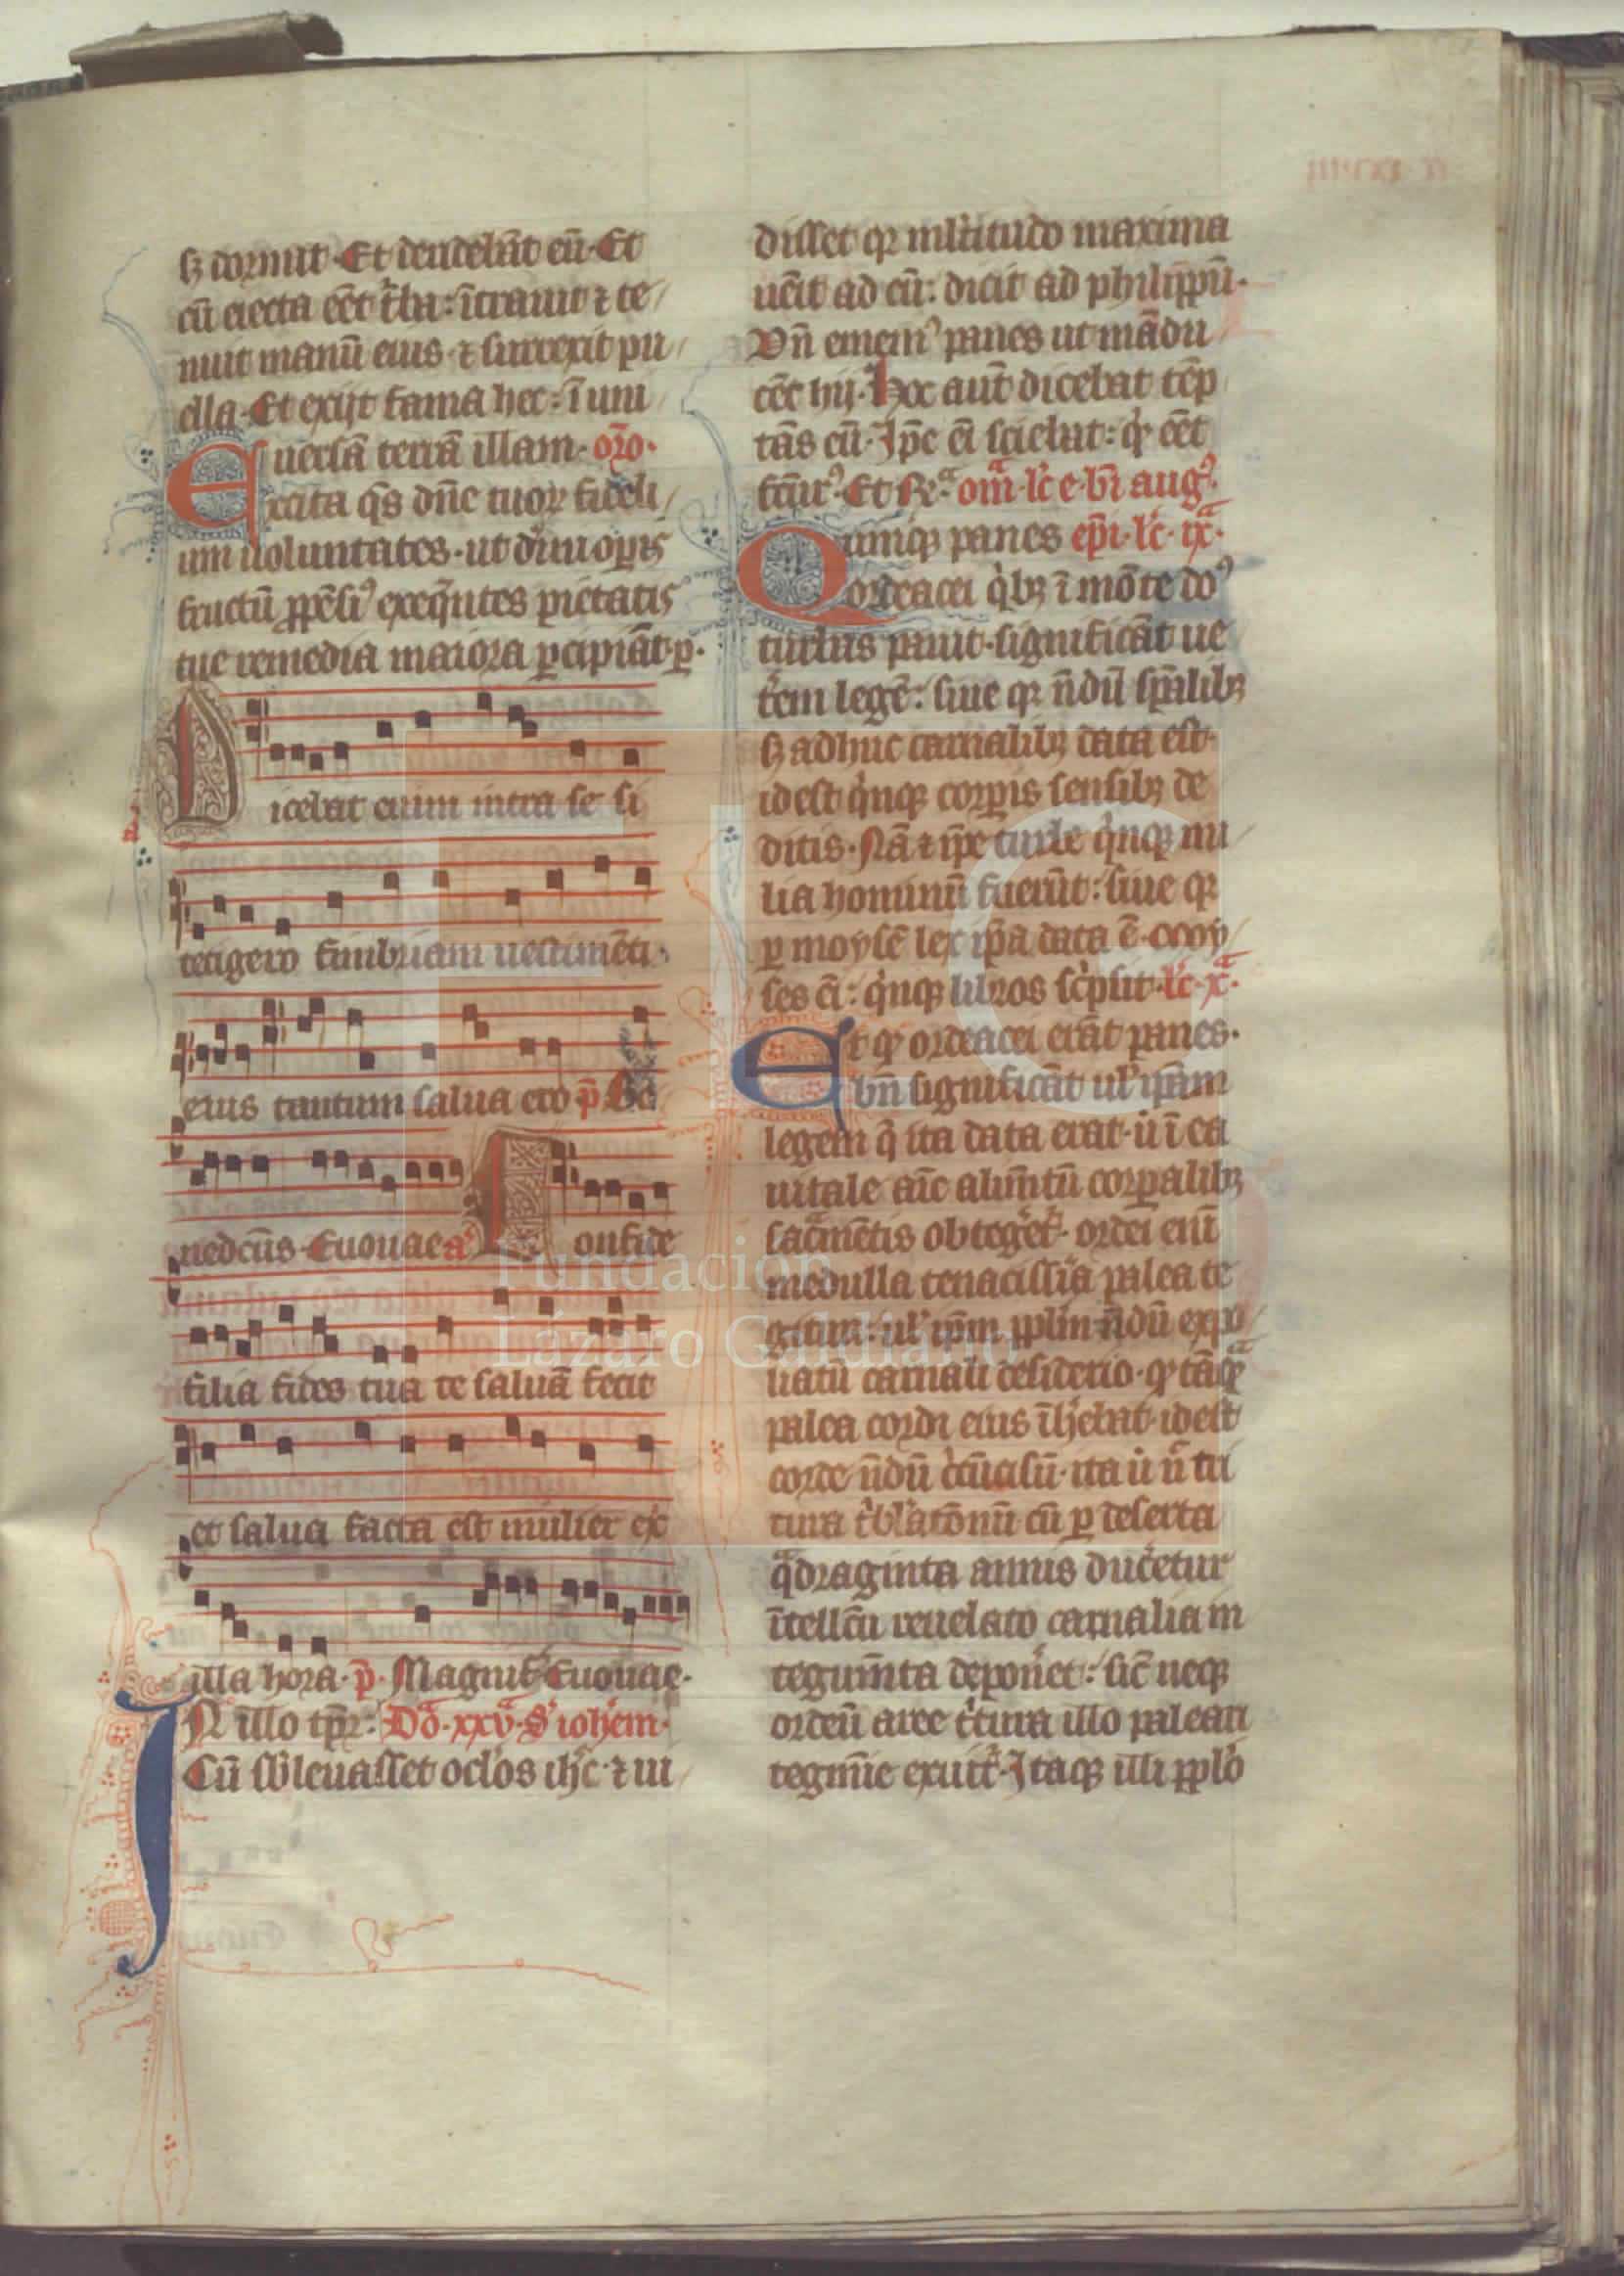 sꝫ dormit. Et deridebāt eū. Et
cū eiecta eēt t̉ba: ītrauit ⁊ te/
nuit manū eius. ⁊ surrexit pu/
ella. Et exijt fama hec: ī uni/
uersā terrā illam. oro.
Excita q̄s dn̄e tuoꝝ fideli/
um uoluntates. ut diuī op̲is
fructū ꝓpēsiꝰ exeq̄ntes pietatis
tue remedia maiora p̲cipiāt. p̲.
Dicebat enim intra se si
tetigero fimbriam uestimēti
eius tantum salua ero p̄. Be
nedcūs. Euouae a Confide
filia fides tua te saluā fecit
et salua facta est mulier ex
illa hora. p̄. Magnif. Euouae.
IN illo tp̄r. Dō. xxv. S. ioh̄em.
Cū sb̉leuasset oclōs ih̄c ⁊ ui/
disset qꝛ ml̉titudo maxima
uēit ad eū: dicit ad philippū.
Vn̄ ememꝰ panes ut mādu/
cēt hij. Hoc aut̄ dicebat tēp/
tās eū. Ip̄e ei sciebat: qd̉ eēt
fc̄turꝰ. Et Rͣ. om̄. lc̄ e. bī augꝰ.
Quinqꝫ panes ep̄i. lc̄. ixͣ.
ordeacei q̉bꝫ ī mōte doꝰ
turbas pauit. significāt ue
t̉em legē: siue qꝛ n̄dū sp̄alibꝫ
sꝫ adhuc carnalibꝫ data est.
id est q̉nqꝫ corp̲is sensibꝫ de
ditis. Nā ⁊ ip̄e turbe q̉nqꝫ mi/
lia hominū fuerūt: siue qꝛ
p̲ moysē lex ip̄a data ē. moy/
ses ei: q̉nqꝫ libros sc̉psit. lc̄. xͣ.
Et qd̉ ordeacei erāt panes.
bn̄ significāt ul̉ ip̄am
legem q̄ ita data erat. ut ī ea
uitale aīe alim̄tū corp̲alibꝫ
sac̄mētis obteget̉. ordei eni
medulla tenacissīa palea te
gitur: ul̉ ip̄m ppl̄m n̄dū expo/
liatū carnali desiderio. qd̉ tāqͣ
palea cordi eius īh̉ebat. id est
corde n̄dū c̉cūcisū. ita ut n̄ tri
tura t̉bl̄atōnū cū p̲ deserta
qͣdraginta annis ducetur
ītellcū reuelato carnalia in
tegum̄ta depon̉et: sic̄ neqꝫ
ordeū aree t̉tura illo paleati
tegmīe exuit̉. Itaqꝫ illi ppl̄o
Fundación
Lázaro Galdiano